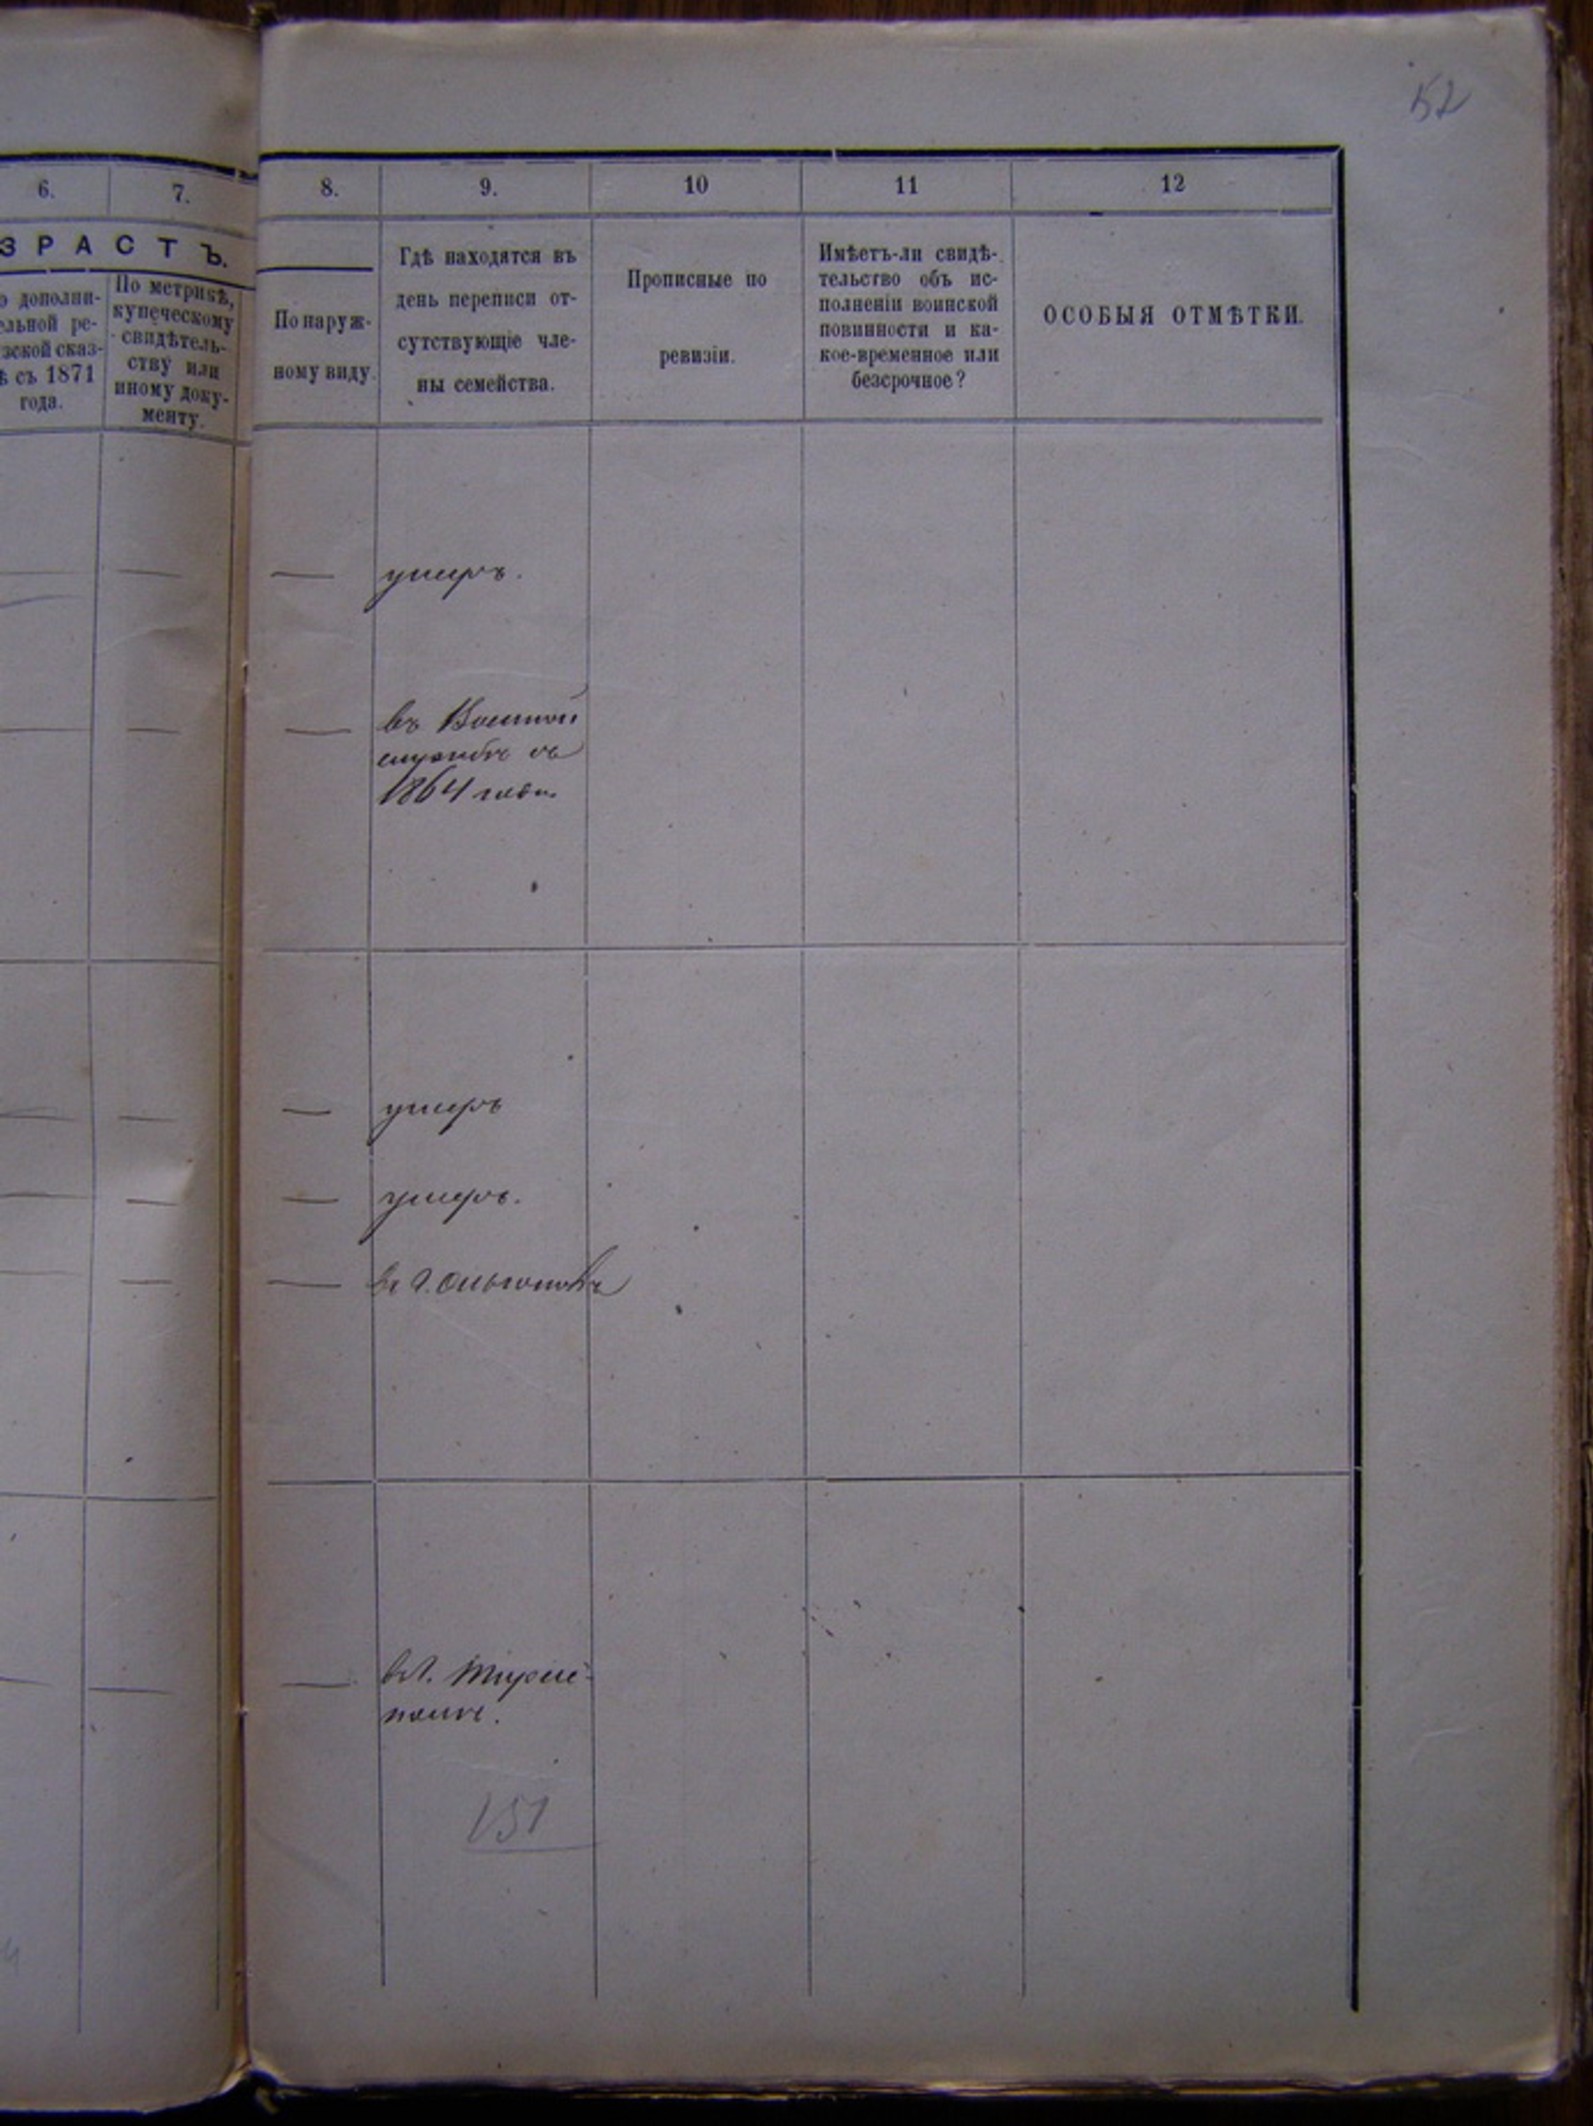 52
6.
7.
8.
9.
10
11
12
ЗРАСТЪ.
о дополни-
ельной ре-
зской сказ-
ѣ съ 1871
года.
По метрикѣ,
купеческому
свидѣтель-
ству или
иному доку-
менту.
По наруж-
ному виду.
Гдѣ находятся въ
день переписи от-
сутствующіе чле-
ны семейства.
Прописные по
ревизіи.
Имѣетъ-ли свидѣ-
тельство объ ис-
полненіи воинской
повинности и ка-
кое-временное или
безсрочное?
ОСОБЫЯ ОТМѢТКИ.
умеръ.
въ Военной
службѣ съ
1864 года.
умеръ
умеръ.
въ г.
въ г. Тирас-
полѣ.
151